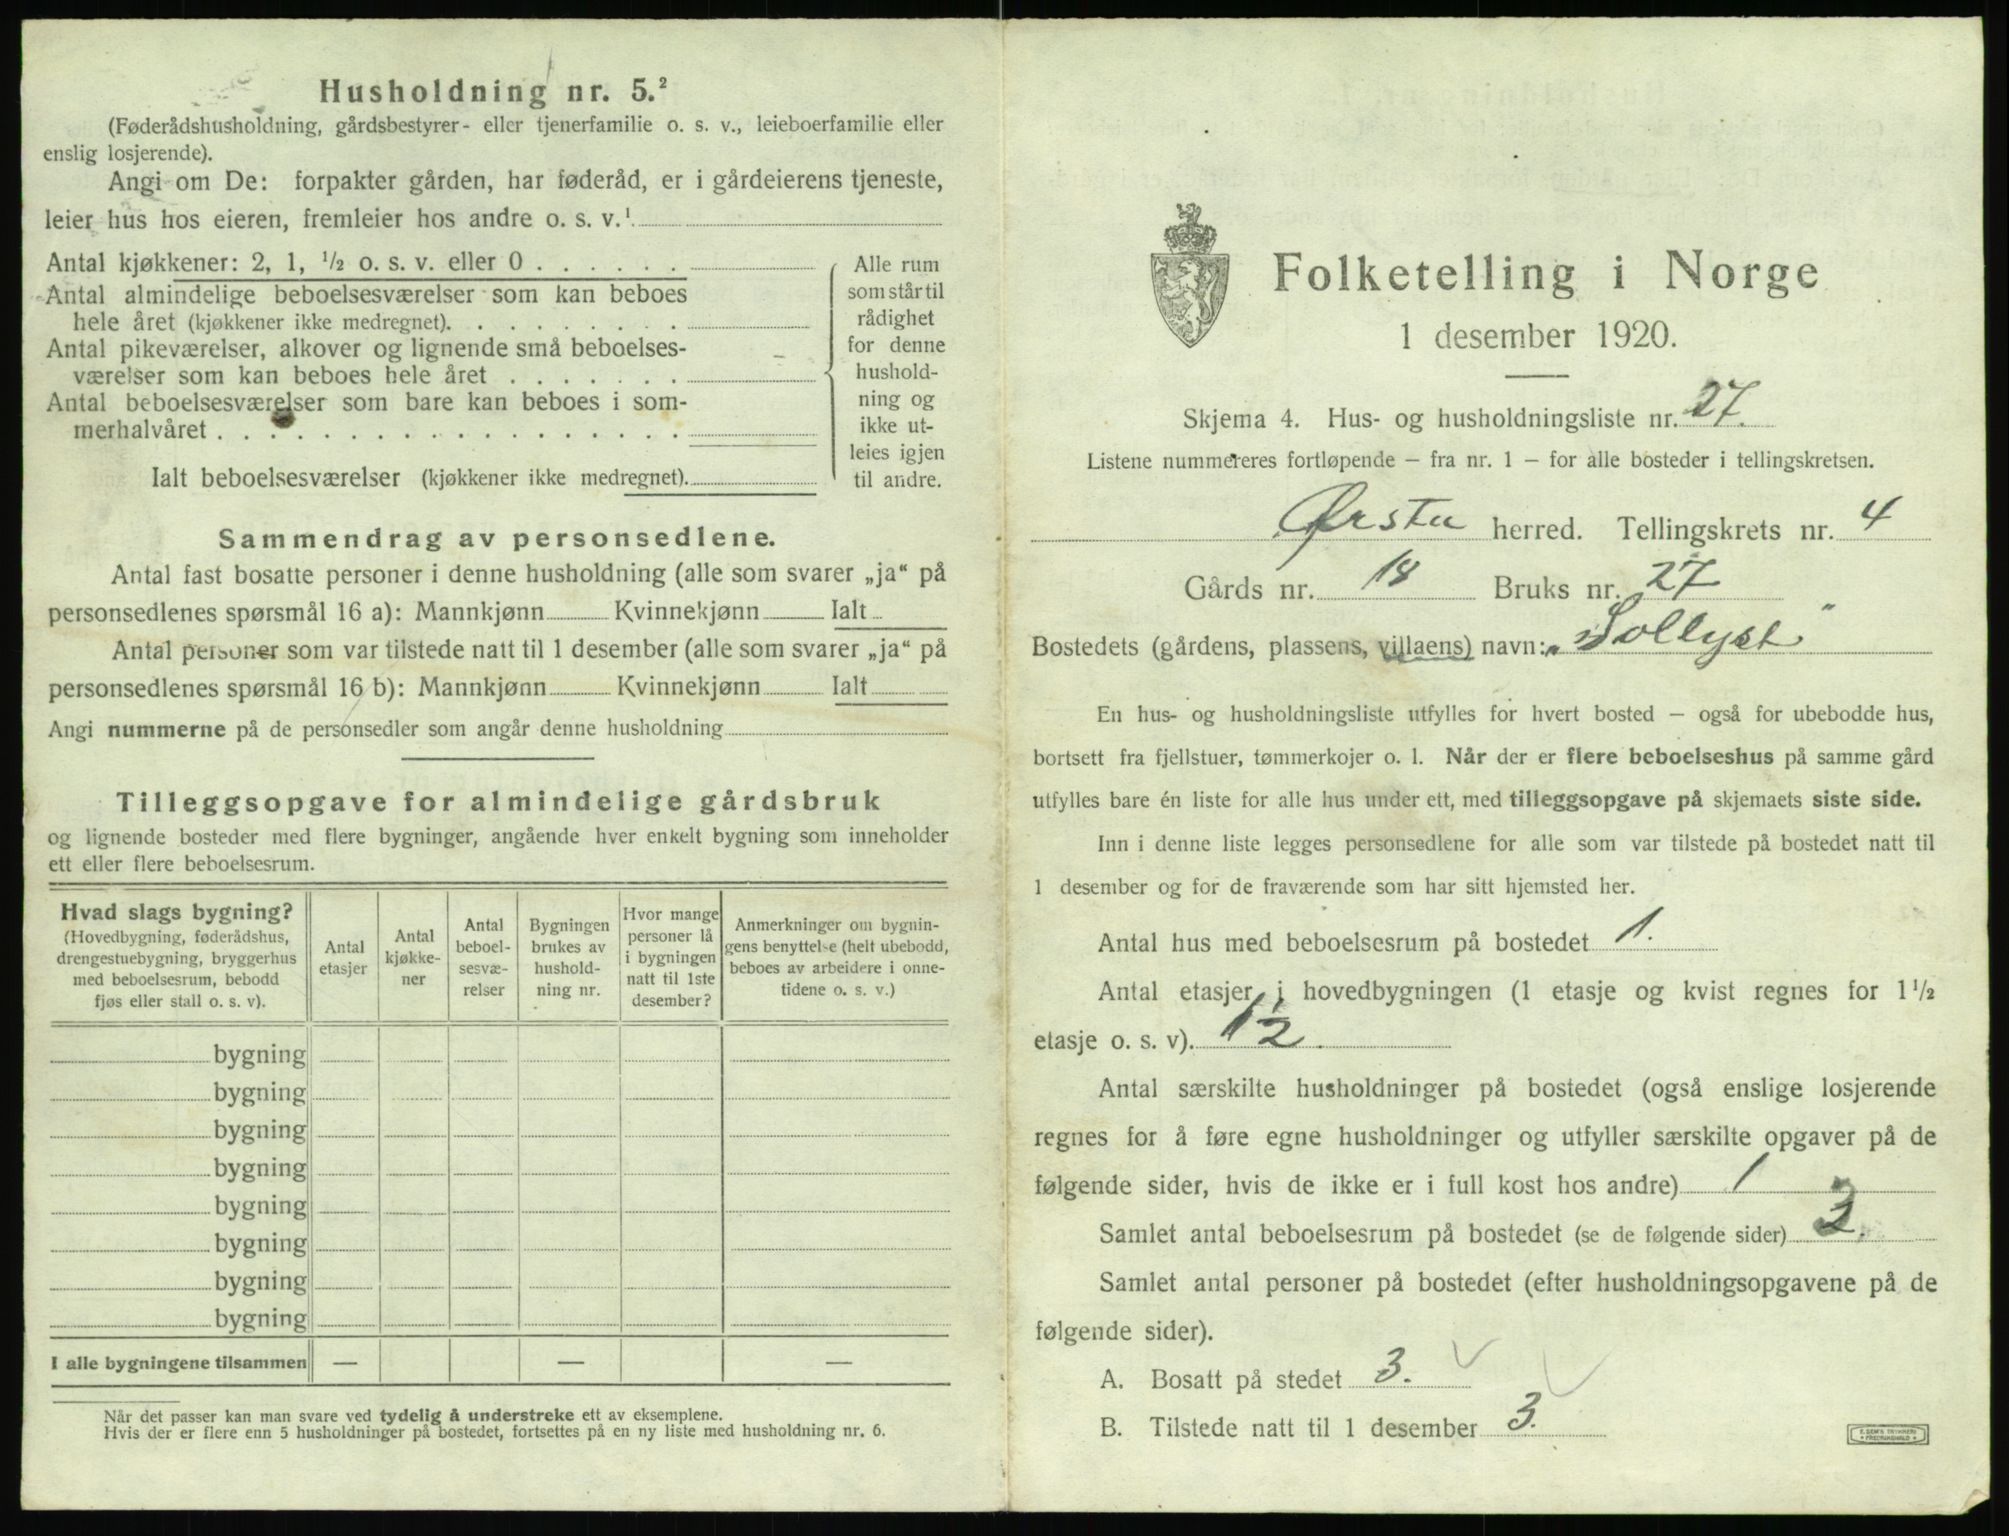 Husholdning nr. 5.²
(Føderådshusholdning, gårdsbestyrer- eller tjenerfamilie o. s. v., leieboerfamilie eller
enslig losjerende).
Angi om De: forpakter gården, har føderåd, er i gårdeierens tjeneste,
leier hus hos eieren, fremleier hos andre o. s. v.¹
Antal kjøkkener: 2, 1, ¹/₂ o. s. v. eller 0 . . . . . .
Antal almindelige beboelsesværelser som kan beboes
hele året (kjøkkener ikke medregnet). . . . . . . . .
Antal pikeværelser, alkover og lignende små beboelses-
værelser som kan beboes hele året . . . . . . .
Antal beboelsesværelser som bare kan beboes i som-
merhalvåret . . . . . . . . . . . . . . . . . .
Ialt beboelsesværelser (kjøkkener ikke medregnet).
Alle rum
som står til
rådighet
for denne
hushold-
ning og
ikke ut-
leies igjen
til andre.
Sammendrag av personsedlene.
Antal fast bosatte personer i denne husholdning (alle som svarer „ja“ på
personsedlenes spørsmål 16 a): Mannkjønn Kvinnekjønn Ialt
Antal personer som var tilstede natt til 1 desember (alle som svarer „ja“ på
personsedlenes spørsmål 16 b): Mannkjønn Kvinnekjønn Ialt
Angi nummerne på de personsedler som angår denne husholdning
Tilleggsopgave for almindelige gårdsbruk
og lignende bosteder med flere bygninger, angående hver enkelt bygning som inneholder
ett eller flere beboelsesrum.
Hvad slags bygning?
(Hovedbygning, føderådshus,
drengestuebygning, bryggerhus
med beboelsesrum, bebodd
fjøs eller stall o. s. v).
Antal
etasjer
Antal
kjøkke-
ner
Antal
beboel-
sesvæ-
relser
Bygningen
brukes av
hushold-
ning nr.
Hvor mange
personer lå
i bygningen
natt til 1ste
desember?
Anmerkninger om bygnin-
gens benyttelse (helt ubebodd,
beboes av arbeidere i onne-
tidene o. s. v.)
bygning
bygning
bygning
bygning
bygning
bygning
bygning
bygning
I alle bygningene tilsammen — — —
Når det passer kan man svare ved tydelig å understreke ett av eksemplene.
Hvis der er flere enn 5 husholdninger på bostedet, fortsettes på en ny liste med husholdning nr. 6.
Folketelling i Norge
1 desember 1920.
Skjema 4. Hus- og husholdningsliste nr. 27.
Listene nummereres fortløpende – fra nr. 1 – for alle bosteder i tellingskretsen.
Ørsta herred. Tellingskrets nr. 4
Gårds nr. 18 Bruks nr. 27
Bostedets (gårdens, plassens, villaens) navn: „Sollyst"
En hus- og husholdningsliste utfylles for hvert bosted – også for ubebodde hus,
bortsett fra fjellstuer, tømmerkojer o. l. Når der er flere beboelseshus på samme gård
utfylles bare én liste for alle hus under ett, med tilleggsopgave på skjemaets siste side.
Inn i denne liste legges personsedlene for alle som var tilstede på bostedet natt til
1 desember og for de fraværende som har sitt hjemsted her.
Antal hus med beboelsesrum på bostedet 1.
Antal etasjer i hovedbygningen (1 etasje og kvist regnes for 1¹/₂
etasje o. s. v). 1½.
Antal særskilte husholdninger på bostedet (også enslige losjerende
regnes for å føre egne husholdninger og utfyller særskilte opgaver på de
følgende sider, hvis de ikke er i full kost hos andre) 1
Samlet antal beboelsesrum på bostedet (se de følgende sider) 3.
Samlet antal personer på bostedet (efter husholdningsopgavene på de
følgende sider).
A. Bosatt på stedet 3.
B. Tilstede natt til 1 desember 3.